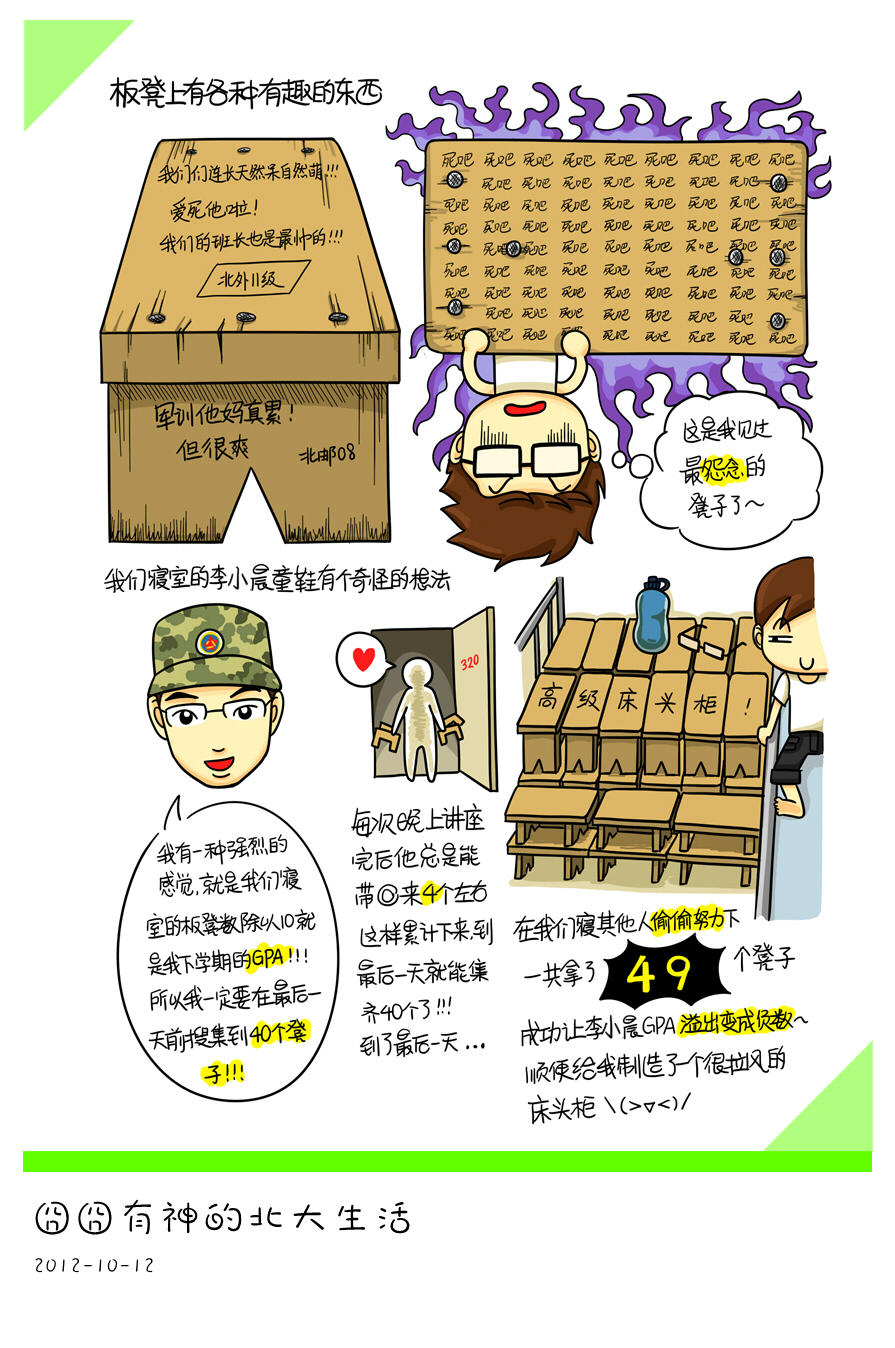 板凳上有各种有趣的东西
我们们连长天然呆自然萌!!!
爱死他啦!
我们的班长也是最帅的!!!
北外11级
军训他妈真累!
但很爽
北邮08
死吧 死吧 死吧 死吧 死吧 死吧 死吧 死吧 死吧
死吧 死吧 死吧 死吧 死吧 死吧 死吧
死吧 死吧 死吧 死吧 死吧 死吧 死吧 死吧 死吧
死吧 死吧 死吧 死吧 死吧 死吧 死吧 死吧 死吧
死吧 死吧 死吧 死吧 死吧 死吧 死吧
死吧 死吧 死吧 死吧 死吧 死吧 死吧 死吧 死吧
死吧 死吧 死吧 死吧 死吧 死吧 死吧 死吧 死吧
死吧 死吧 死吧 死吧 死吧 死吧 死吧
死吧 死吧 死吧 死吧 死吧 死吧 死吧 死吧 死吧
这是我见过
最怨念的
凳子了~
我们寝室的李小晨童鞋有个奇怪的想法
320
高级床头柜!
我有一种强烈的
感觉,就是我们寝
室的板凳数除以10就
是我下学期的GPA!!!
所以我一定要在最后一
天前搜集到40个凳
子!!!
每次晚上讲座
完后他总是能
带回来4个左右
这样累计下来,到
最后一天就能集
齐40个了!!!
到了最后一天...
在我们寝其他人偷偷努力下
一共拿了49个凳子
成功让李小晨GPA溢出变成负数~
顺便给我制造了一个很拉风的
床头柜\(>▽<)/
囧囧有神的北大生活
2012-10-12